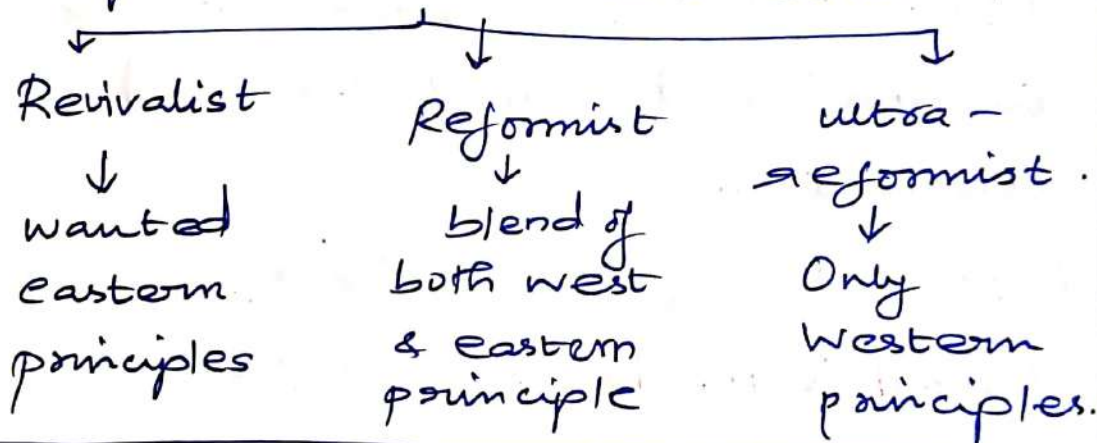 Revivalist
↓
wanted
eastern
principles
Reformist
↓
blend of
both west
& eastern
principle
ultra-
reformist.
↓
Only
Western
principles.